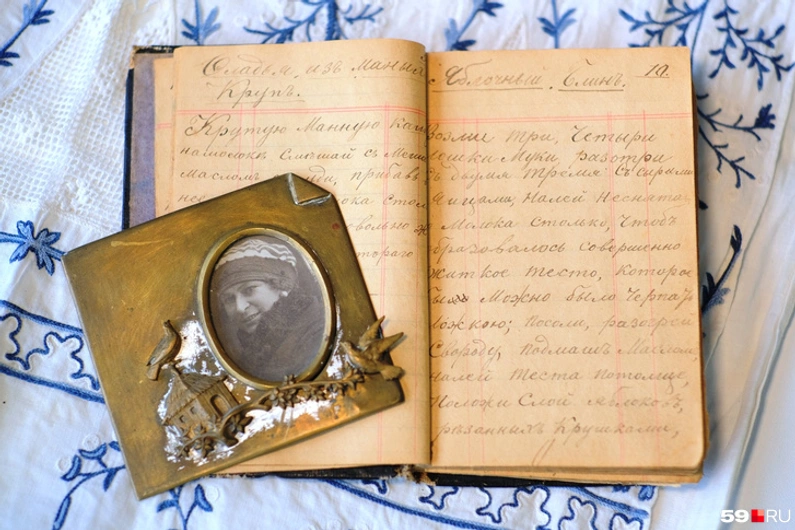 Оладьи изъ маныхъ
Крупъ.
Крутую Манную каш
на молокѣ Смѣшай съ
маслом прибавь
ока стол
вольно
тораго
Яблочный Блинъ. 19.
Возми три, Четыри
ложки Муки, разотри
двумя тремя съ сирыми
Яицами, Налей Неснята
Молока столько, Чтобъ
бразовалось совершенно
житкое тесто, которое
Можно было Черпать
ложкою; посоли, разогрей
Сковороду, подмашь Маслом,
налей теста потолще,
Положи Слой Яблоковъ,
рѣзанныхъ Кружками,
59.RU